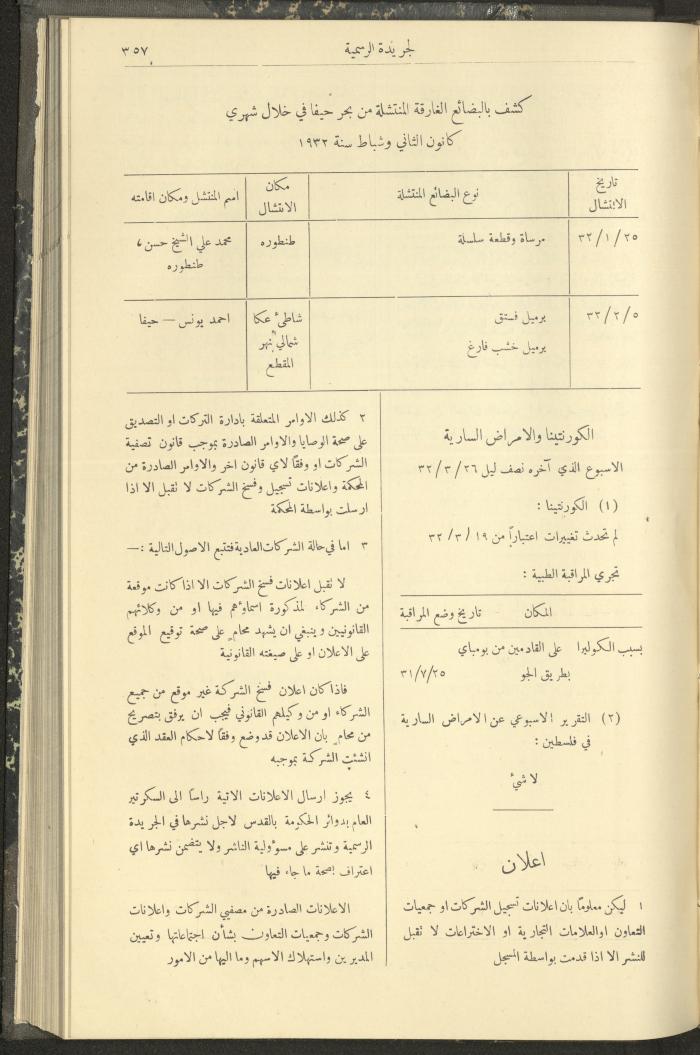 لجريدة الرسمية
٣٥٧
كشف بالبضائع الغارقة المنتشلة من بحر حيفا في خلال شهري
كانون الثاني وشباط سنة ١٩٣٢
تاريخ الانتشال
نوع البضائع المنتشلة
مكان الانتشال
اسم المنتشل ومكان اقامته
٣٢/١/٢٥
مرساة وقطعة سلسلة
طنطوره
محمد علي الشيخ حسن،
طنطوره
٣٢/٢/٥
برميل فستق
برميل خشب فارغ
شاطئ عكا
شمالي نهر
المقطع
احمد يونس — حيفا
الكورنتينا والامراض السارية
الاسبوع الذي آخره نصف ليل ٣٢/٣/٢٦
(١) الكورنتينا :
لم تحدث تغييرات اعتباراً من ٣٢/٣/١٩
تجري المراقبة الطبية :
المكان تاريخ وضع المراقبة
بسبب الكوليرا على القادمين من بومباي
بطريق الجو ٣١/٧/٢٥
(٢) التقرير الاسبوعي عن الامراض السارية
في فلسطين :
لا شيء
اعلان
١ ليكن معلومًا بان اعلانات تسجيل الشركات او جمعيات
التعاون اوالعلامات التجارية او الاختراعات لا تقبل
للنشر الا اذا قدمت بواسطة المسجل
٢ كذلك الاوامر المتعلقة بادارة التركات او التصديق
على صحة الوصايا والاوامر الصادرة بموجب قانون تصفية
الشركات او وفقًا لاي قانون اخر والاوامر الصادرة من
المحكمة واعلانات تسجيل وفسخ الشركات لا تقبل الا اذا
ارسلت بواسطة المحكمة
٣ اما في حالة الشركات العادية فتتبع الاصول التالية :—
لا تقبل اعلانات فسخ الشركات الا اذا كانت موقعة
من الشركاء لمذكورة اسماؤهم فيها او من وكلائهم
القانونيين وينبغي ان يشهد محام على صحة توقيع الموقع
على الاعلان او على صيغته القانونية
فاذا كان اعلان فسخ الشركة غير موقع من جميع
الشركاء او من وكيلهم القانوني فيجب ان يرفق بتصريح
من محام بان الاعلان قد وضع وفقًا لاحكام العقد الذي
انشئت الشركة بموجبه
٤ يجوز ارسال الاعلانات الاتية راسًا الى السكرتير
العام بدوائر الحكومة بالقدس لاجل نشرها في الجريدة
الرسمية وتنشر على مسؤولية الناشر ولا يتضمن نشرها اي
اعتراف بصحة ما جاء فيها
الاعلانات الصادرة من مصفيي الشركات واعلانات
الشركات وجمعيات التعاون بشأن اجتماعاتها وتعيين
المديرين واستهلاك الاسهم وما اليها من الامور